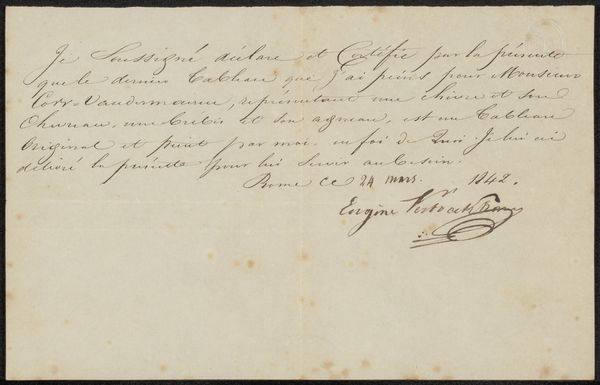 Je Soussigné déclare et Certifie par la présente
que le dernier Tableau que j'ai peint pour Monsieur
Cors-Vandermaeren, représentant une chèvre et son
Chevreau, une brebis et son agneau, est un Tableau
Original et peint par moi. en foi de Quoi Je lui ai
délivré la présente pour lui Servir au besoin.
Rome ce 24 mars. 1842.
Eugène Verboeckhoven